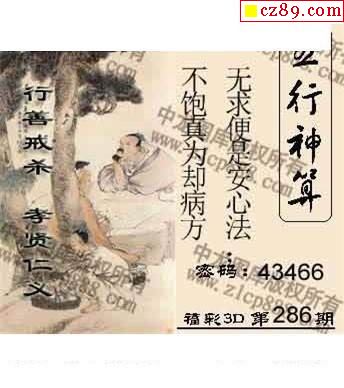 cz89.com
五行神算
无求便是安心法；
不饱真为却病方
行善戒杀 孝贤仁义
密码：43466
福彩3D 第286期
中龙图库版权所有
www.z1cp89.com